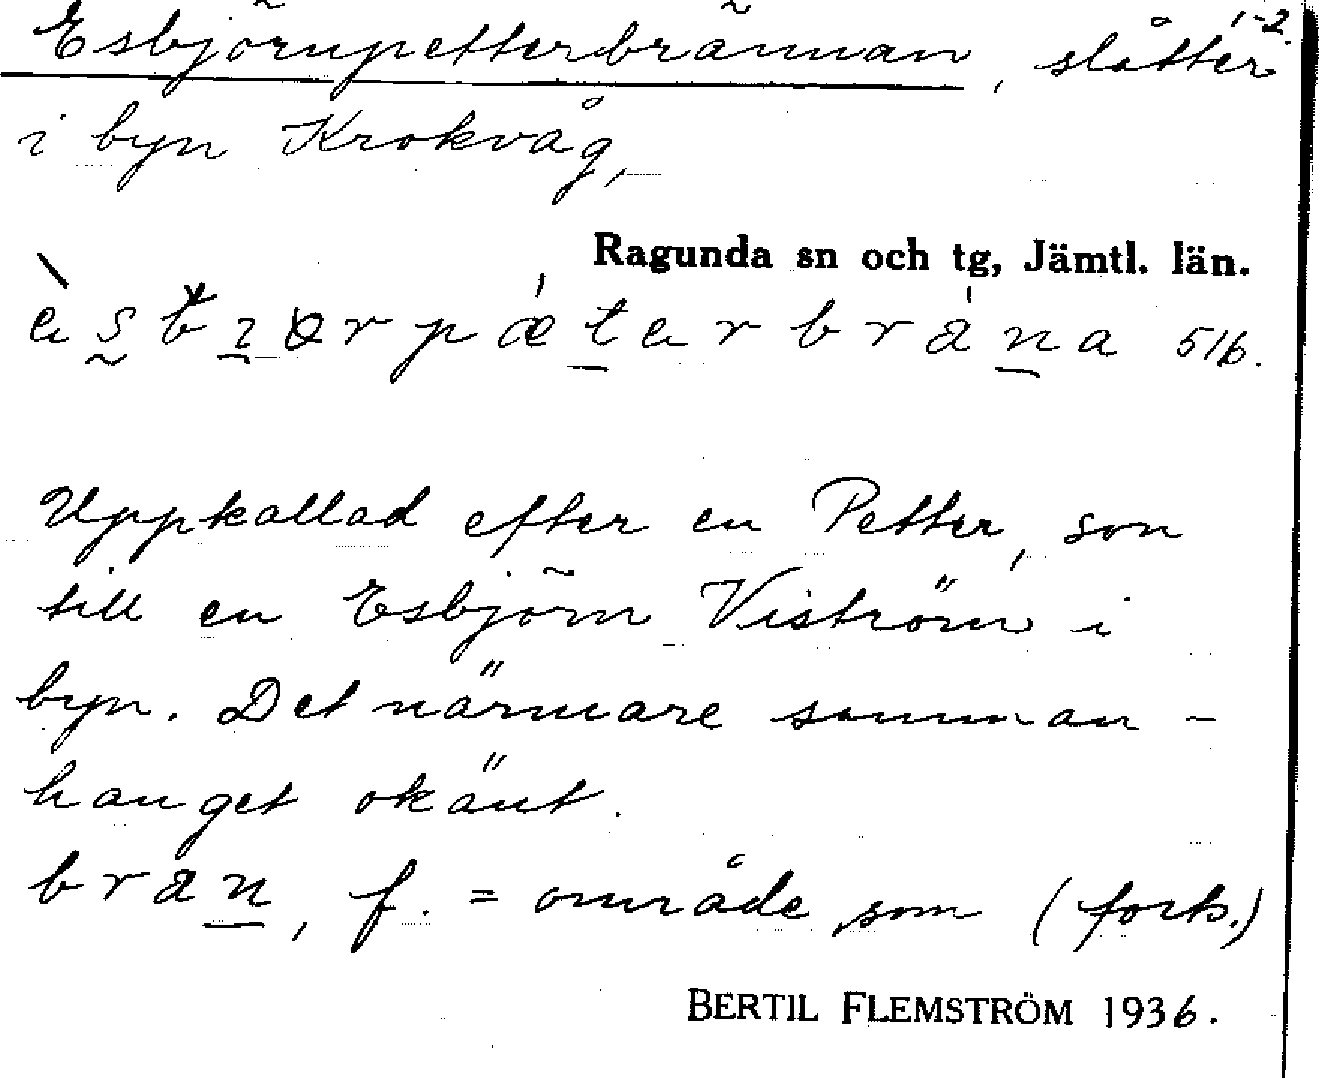 Esbjörnpetterbrännan, slåtter 1-2.
i byn Krokvåg,
Ragunda sn och tg, Jämtl. län.
516.
Uppkallad efter en Petter, son
till en Esbjörn Viström i
byn. Det närmare samman-
hanget okänt.
bran, f. = område som (forts.)
BERTIL FLEMSTRÖM 1936.